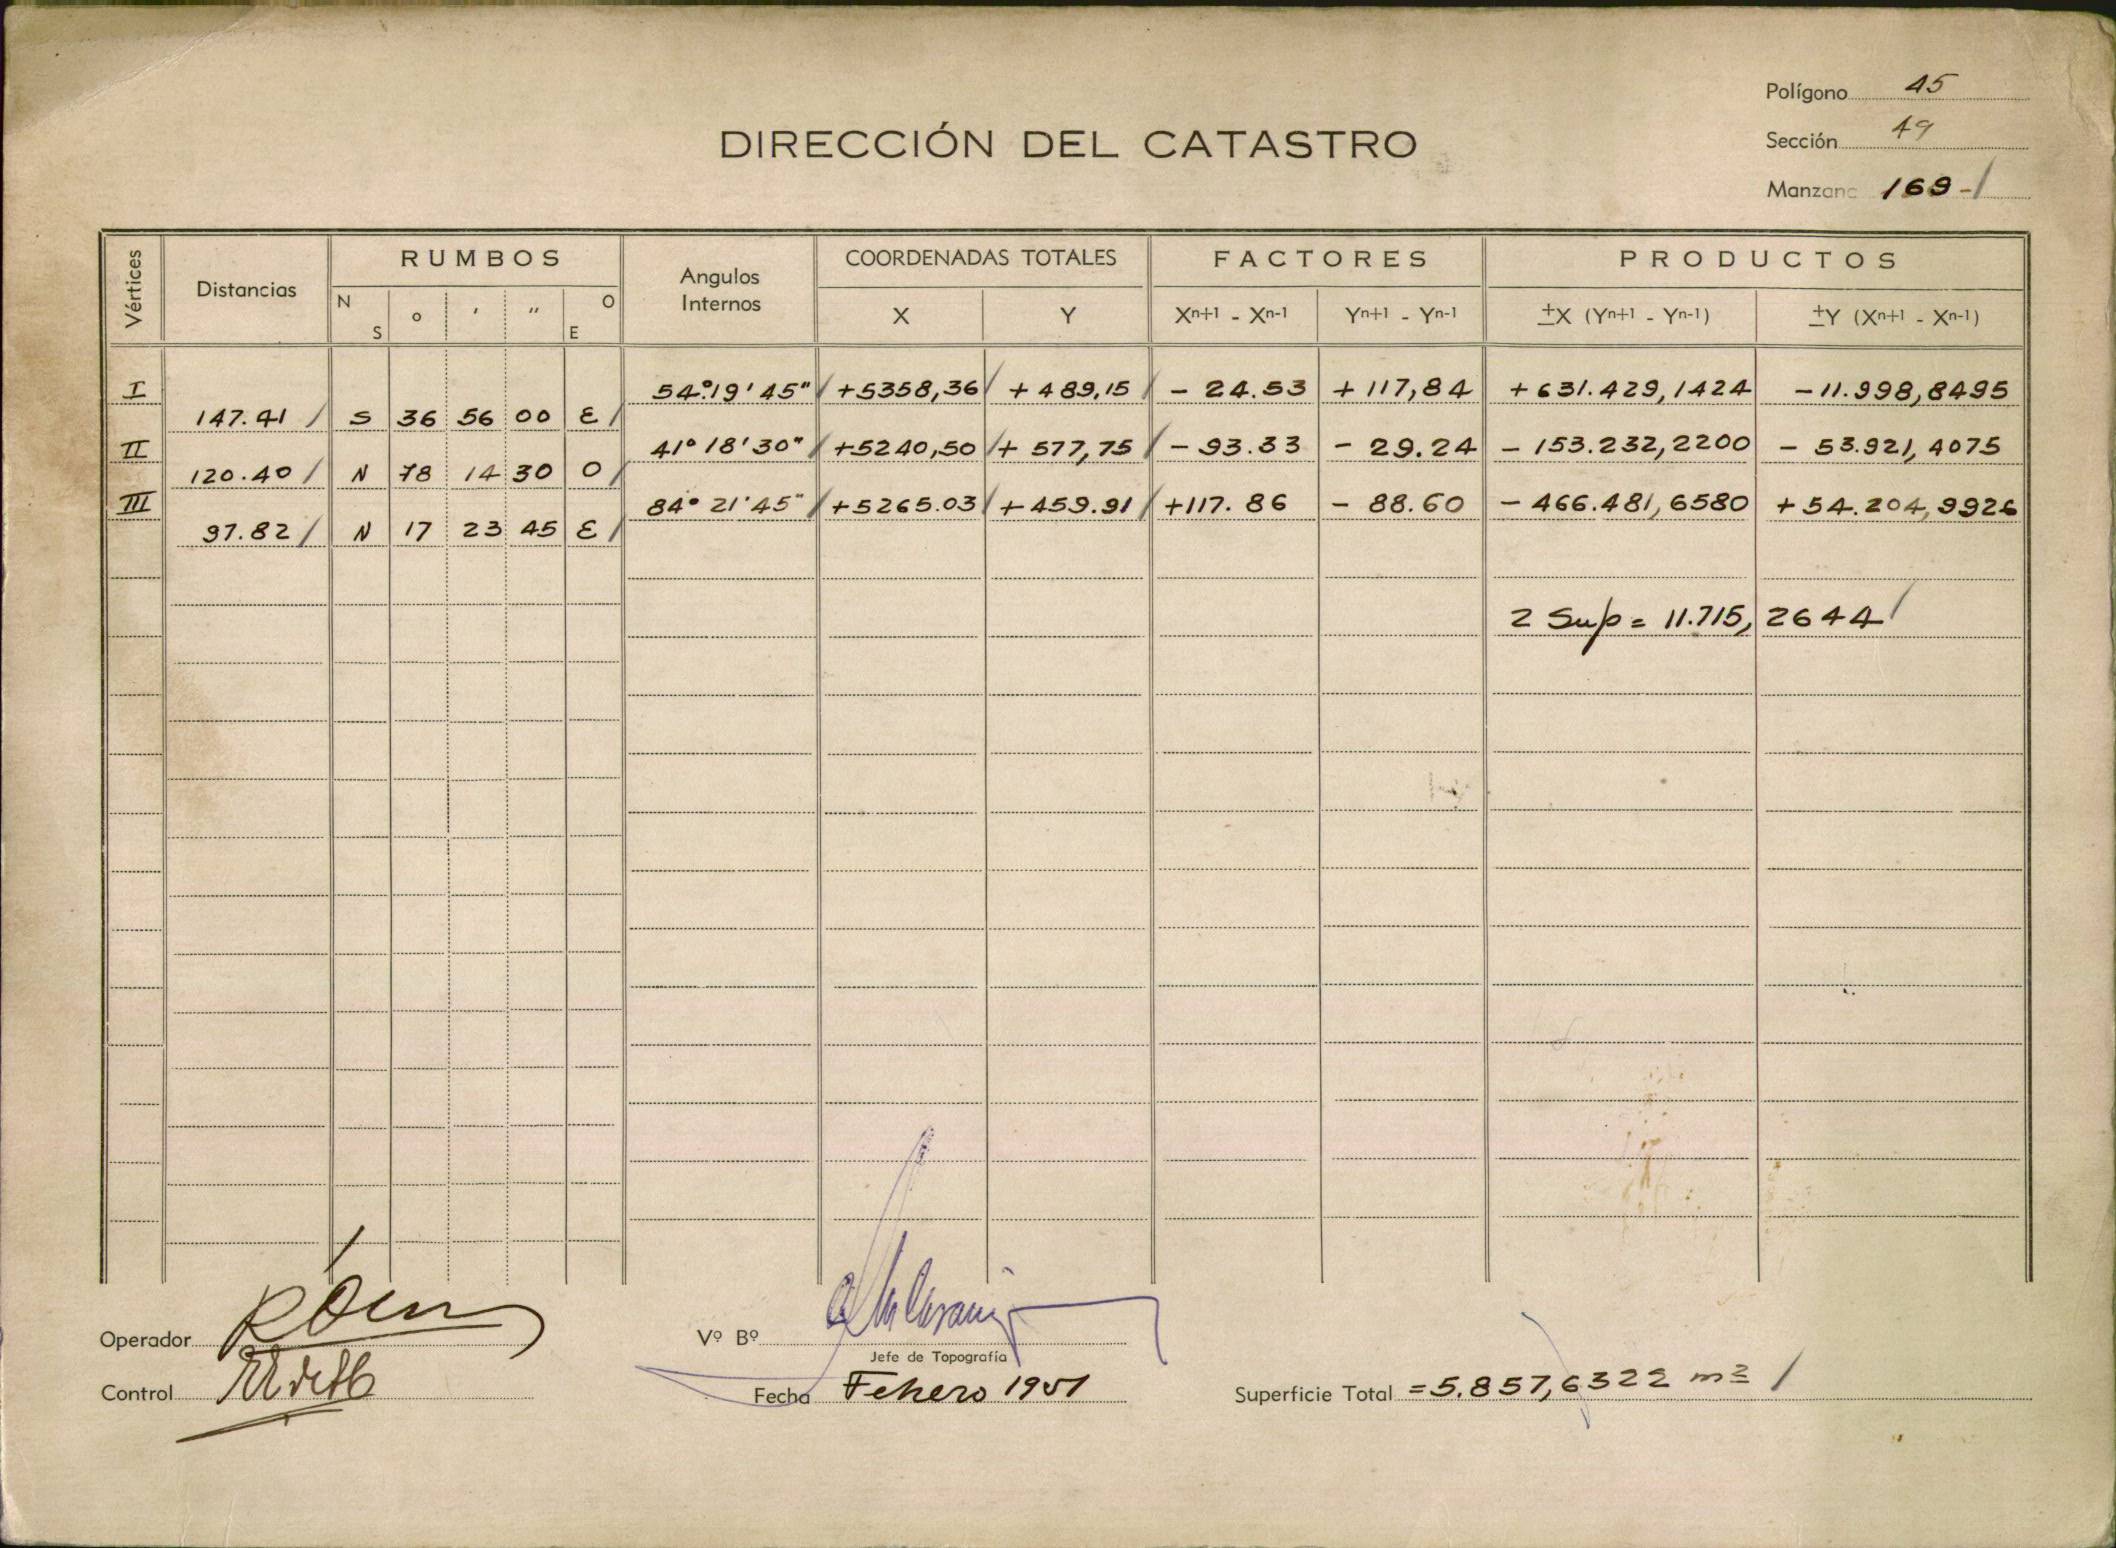 Polígono 45
DIRECCIÓN DEL CATASTRO
Sección 49
Manzana 169-/
Vértices Distancias RUMBOS Angulos Internos COORDENADAS TOTALES FACTORES PRODUCTOS
N S o ' " O E X Y Xn+1 - Xn-1 Yn+1 - Yn-1 ±X (Yn+1 - Yn-1) ±Y (Xn+1 - Xn-1)
I 54°19'45" +5358,36 +489,15 -24.53 +117,84 +631.429,1424 -11.998,8495
147.41 S 36 56 00 E
II 41°18'30" +5240,50 +577,75 -93.33 -29.24 -153.232,2200 -53.921,4075
120.40 N 78 14 30 O
III 84°21'45" +5265.03 +459.91 +117.86 -88.60 -466.481,6580 +54.204,9926
97.82 N 17 23 45 E
2 Sup = 11.715,2644
Operador
Vº Bº
Jefe de Topografía
Control
Fecha Febero 1951
Superficie Total =5.857,6322 m2